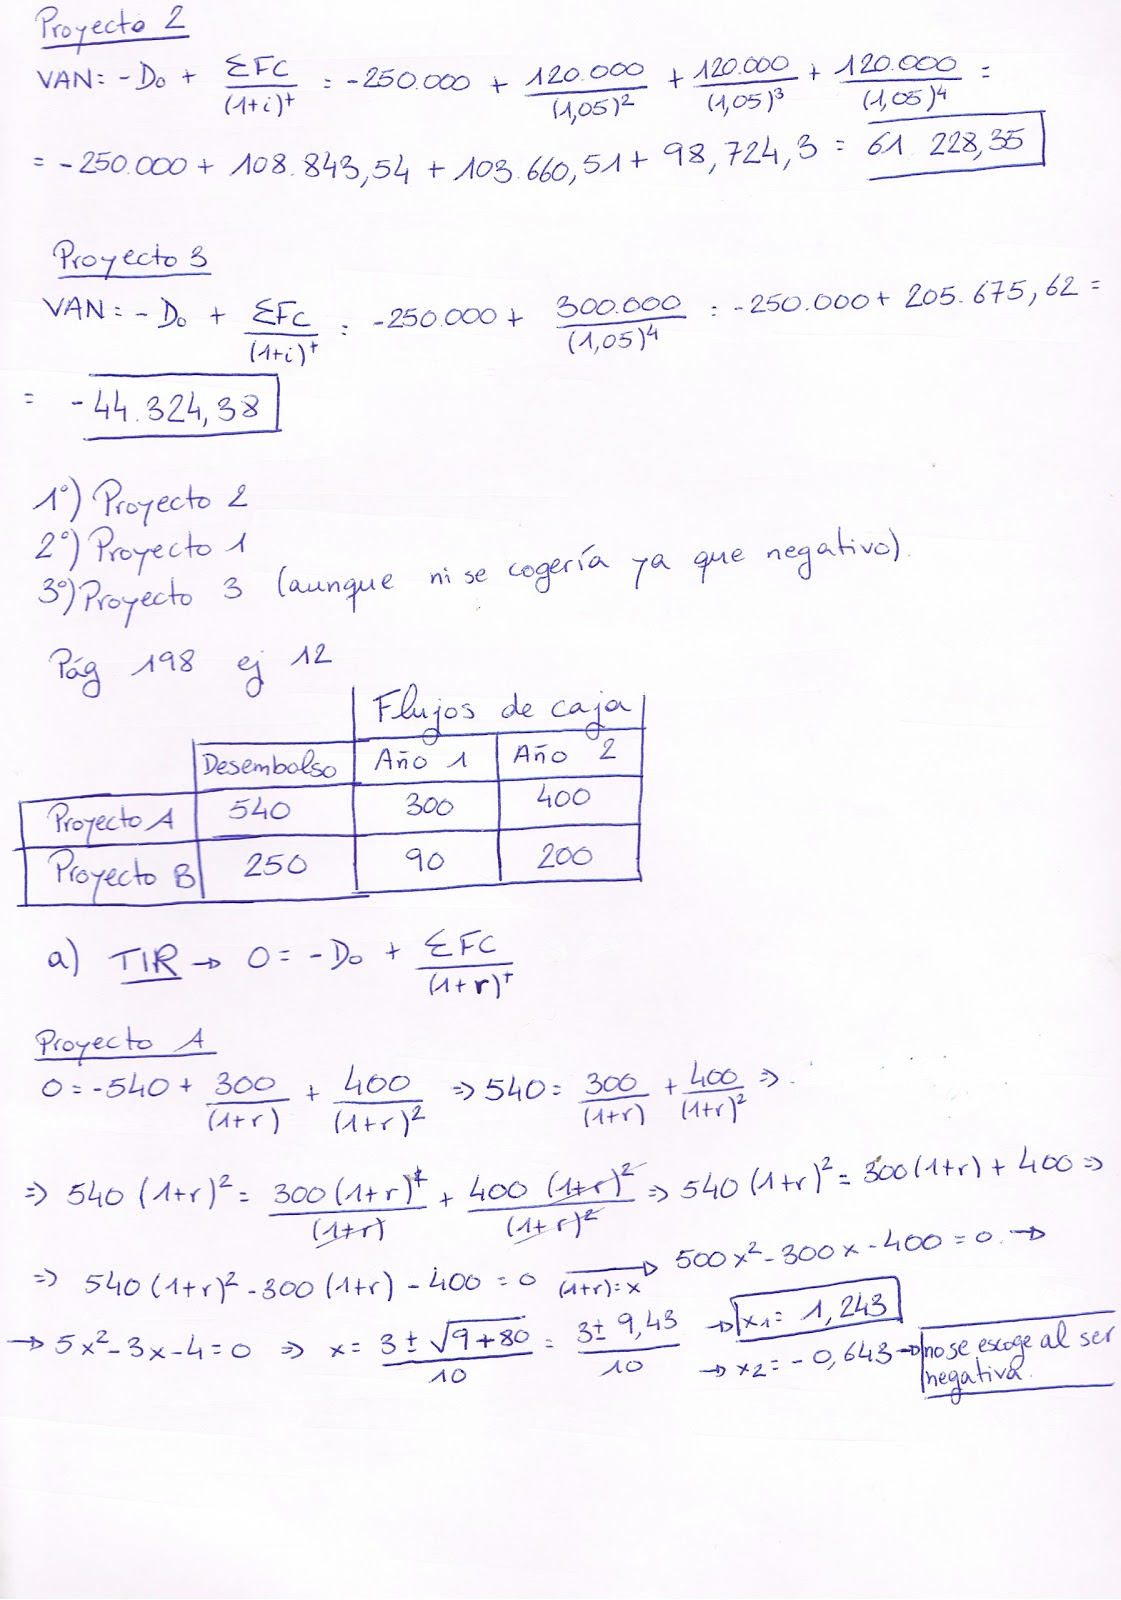 Proyecto 2
VAN: - Do + ΣFC/(1+i)^t : -250.000 + 120.000/(1,05)^2 + 120.000/(1,05)^3 + 120.000/(1,05)^4 =
= -250.000 + 108.843,54 + 103.660,51 + 98,724,3 = 61.228,35
Proyecto 3
VAN: - Do + ΣFC/(1+i)^t : -250.000 + 300.000/(1,05)^4 : -250.000 + 205.675,62 =
= -44.324,38
1º) Proyecto 2
2º) Proyecto 1
3º) Proyecto 3 (aunque ni se cogería ya que negativo).
Pág 198 ej 12
Flujos de caja
Desembolso Año 1 Año 2
Proyecto A 540 300 400
Proyecto B 250 90 200
a) TIR → 0 = - Do + ΣFC/(1+r)^t
Proyecto A
0 = -540 + 300/(1+r) + 400/(1+r)^2 ⇒ 540 = 300/(1+r) + 400/(1+r)^2 ⇒
⇒ 540 (1+r)^2 = 300 (1+r)^2/(1+r) + 400 (1+r)^2/(1+r)^2 ⇒ 540 (1+r)^2 = 300 (1+r) + 400 ⇒
⇒ 540 (1+r)^2 - 300 (1+r) - 400 = 0 (1+r) = x → 500x^2 - 300x - 400 = 0 →
→ 5x^2 - 3x - 4 = 0 ⇒ x = 3 ± √(9+80)/10 = 3 ± 9,43/10 → x1 = 1,243
→ x2 = - 0,643 → no se escoge al ser negativa.